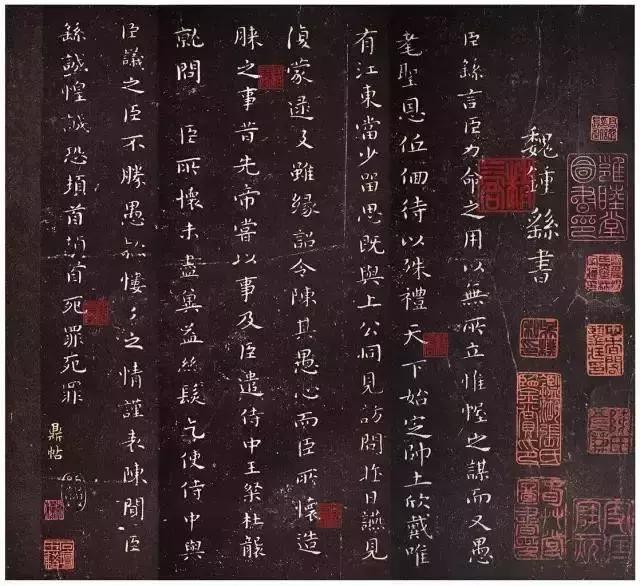 雍睦堂圖書印
魏鍾繇書
臣繇言臣力命之用以無所立惟幄之謀而又愚
耄聖恩低佪待以殊禮天下始定師土欣戴唯
有江東當少留思既與上公同見訪問昨日讌見
復蒙逮及雖緣詔令陳其愚心而臣所懷造
膝之事昔先帝嘗以事及臣遣侍中王粲杜襲
就問 臣所懷未盡冀益絲髮乞使侍中與
臣議之臣不勝愚款慺々之情謹表陳聞臣
繇誠惶誠恐頓首頓首死罪死罪
鼎帖